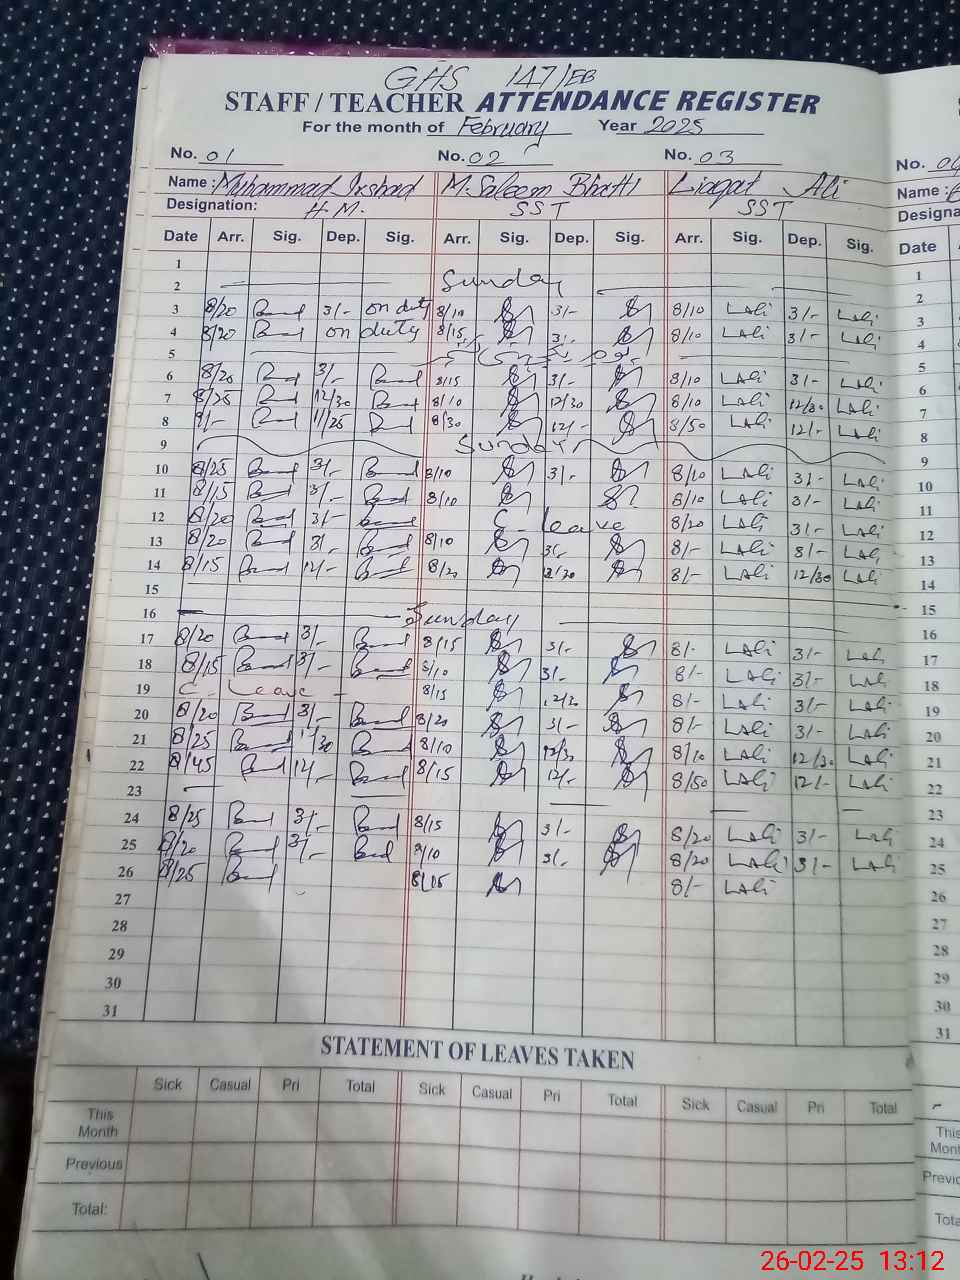 GHS 147/EB
STAFF / TEACHER ATTENDANCE REGISTER
For the month of February Year 2025
No. 01 No. 02 No. 03 No. 04
Name : Muhammad Irshad M. Saleem Bhatti Liaqat Ali Name :
Designation: H.M. SST SST Designa
Date Arr. Sig. Dep. Sig. Arr. Sig. Dep. Sig. Arr. Sig. Dep. Sig. Date
1 1
2 Sunday 2
3 8/20 3/- on duty 8/10 3/- 8/10 LAli 3/- LAli 3
4 8/20 on duty 8/15 3/- 8/10 LAli 3/- LAli 4
5 5
6 8/20 3/- 8/15 3/- 8/10 LAli 3/- LAli 6
7 8/25 12/30 8/10 12/30 8/10 LAli 12/30 LAli 7
8 9/- 11/25 8/30 12/- 8/50 LAli 12/- LAli 8
9 Sunday 9
10 8/25 3/- 8/10 3/- 8/10 LAli 3/- LAli 10
11 8/15 3/- 8/10 8/10 LAli 3/- LAli 11
12 8/20 3/- C. leave 8/20 LAli 3/- LAli 12
13 8/20 3/- 8/10 3/- 8/- LAli 8/- LAli 13
14 8/15 12/- 8/20 12/30 8/- LAli 12/30 LAli 14
15 15
16 Sunday 16
17 8/20 3/- 8/15 3/- 8/- LAli 3/- LAli 17
18 8/15 3/- 8/10 3/- 8/- LAli 3/- LAli 18
19 C. Leave 8/15 12/30 8/- LAli 3/- LAli 19
20 8/20 3/- 8/20 3/- 8/- LAli 3/- LAli 20
21 8/25 12/30 8/10 12/30 8/10 LAli 12/30 LAli 21
22 8/45 12/- 8/15 12/- 8/50 LAli 12/- LAli 22
23 23
24 8/25 3/- 8/15 3/- 8/20 LAli 3/- LAli 24
25 8/20 3/- 3/- 8/20 LAli 3/- LAli 25
26 8/25 8/15 8/- LAli 26
27 27
28 28
29 29
30 30
31 31
STATEMENT OF LEAVES TAKEN
Sick Casual Pri Total Sick Casual Pri Total Sick Casual Pri Total
This Month This Mont
Previous Previo
Total: Tota
26-02-25 13:12